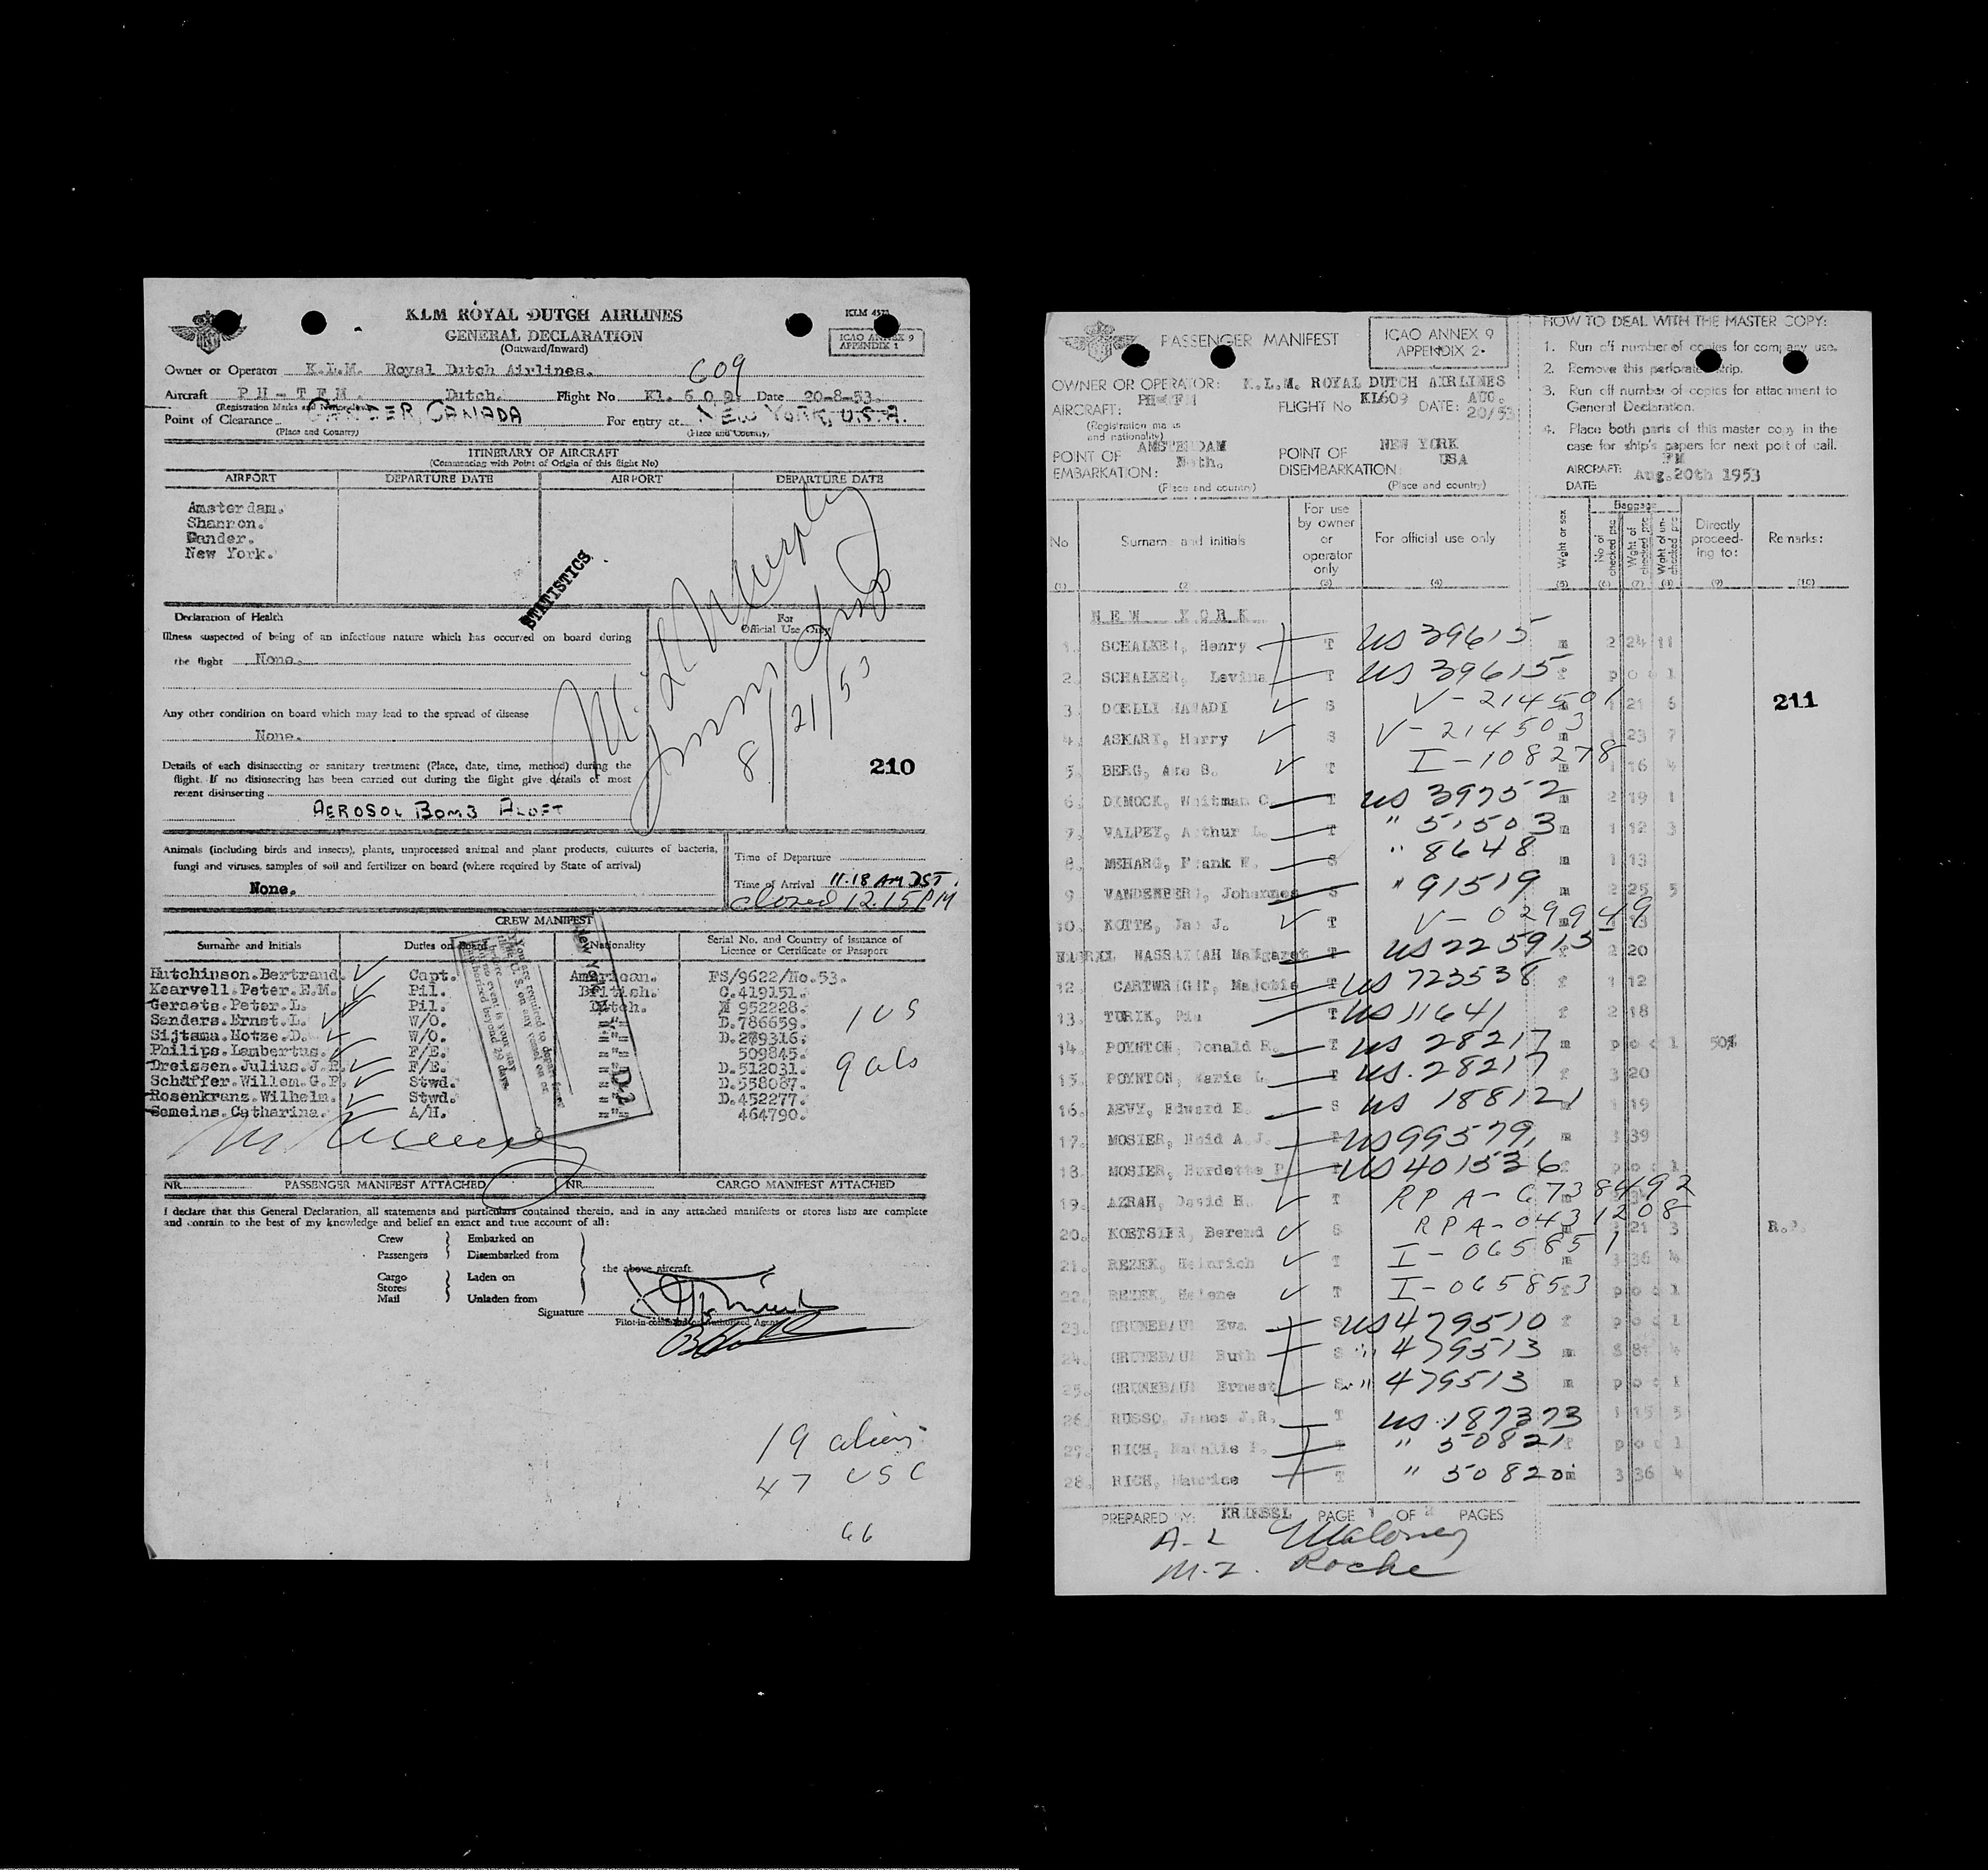 KLM ROYAL DUTCH AIRLINES
GENERAL DECLARATION
(Outward/Inward)
KLM
ICAO ANNEX 9
APPENDIX 1
609
Owner or Operator K.L.M. Royal Dutch Airlines.
Aircraft PH - TFM. Dutch. Flight No Kl. 609. Date 20-8-53.
(Registration Marks and Nationality)
Point of Clearance GANDER, CANADA For entry at NEW YORK, U.S.A.
(Place and Country) (Place and Country)
ITINERARY OF AIRCRAFT
(Commencing with Point of Origin of this flight No)
AIRPORT DEPARTURE DATE AIRPORT DEPARTURE DATE
Amsterdam.
Shannon.
Gander.
New York.
STATISTICS
Declaration of Health
For
Official Use Only
Illness suspected of being of an infectious nature which has occurred on board during
the flight None.
8/21/53
Any other condition on board which may lead to the spread of disease
None.
210
Details of each disinsecting or sanitary treatment (Place, date, time, method) during the
flight. If no disinsecting has been carried out during the flight give details of most
recent disinsecting
AEROSOL BOMB ALOFT
Animals (including birds and insects), plants, unprocessed animal and plant products, cultures of bacteria,
fungi and viruses, samples of soil and fertilizer on board (where required by State of arrival)
None.
Time of Departure
Time of Arrival 11.18 AM DST.
closed 12.15 PM
CREW MANIFEST
Surname and Initials Duties on Board Nationality Serial No. and Country of issuance of
Licence or Certificate or Passport
Hutchinson.Bertrand. Capt. American. FS/9622/No.53.
Kearvell.Peter.E.M. Pil. British. C.419151.
Geraets.Peter.L. Pil. Dutch. M 952228.
Sanders.Ernst.L. W/O. ="= D.786659. 1 US
Sijtsma.Hotze.D. W/O. ="= D.279316.
Philips.Lambertus. F/E. ="= 509845.
Dreissen.Julius.J.H. F/E. ="= D.512031. 9 als
Schäffer.Willem.G.F. Stwd. ="= D.558087.
Rosenkranz.Wilhelm. Stwd. ="= D.452277.
Semeins.Catharina. A/H. ="= 464790.
You are required to depart from
the U. S. on any vessel on or
before
In no event is your stay
authorized beyond 29 days.
D-2
NR. PASSENGER MANIFEST ATTACHED NR. CARGO MANIFEST ATTACHED
I declare that this General Declaration, all statements and particulars contained therein, and in any attached manifests or stores lists are complete
and contain to the best of my knowledge and belief an exact and true account of all:
Crew Embarked on
Passengers Disembarked from
the above aircraft.
Cargo Laden on
Stores
Mail Unladen from
Signature
Pilot-in-command or Authorized Agent
19 aliens
47 USC
66
PASSENGER MANIFEST
ICAO ANNEX 9
APPENDIX 2.
OWNER OR OPERATOR: K.L.M. ROYAL DUTCH AIRLINES
AIRCRAFT: PH-TFM FLIGHT No KL609 DATE: AUG. 20/53
(Registration marks
and nationality)
POINT OF EMBARKATION: AMSTERDAM Neth. POINT OF DISEMBARKATION: NEW YORK USA
(Place and country) (Place and country)
HOW TO DEAL WITH THE MASTER COPY:
1. Run off number of copies for company use.
2. Remove this perforated strip.
3. Run off number of copies for attachment to
General Declaration.
4. Place both parts of this master copy in the
case for ship's papers for next port of call.
AIRCRAFT: FM
DATE: Aug.20th 1953
No Surname and initials For use by owner or operator only For official use only Wght or sex Baggage No of checked pcs Wght of checked pcs Wght of un-checked pcs Directly proceeding to: Remarks:
(1) (2) (3) (4) (5) (6) (7) (8) (9) (10)
NEW YORK
1. SCHALKER, Henry T US 39615 m 2 24 11
2. SCHALKER, Levina T US 39615 f pool
3. DORLLI HAVADI S V-214501 21 6
211
4. ASKARY, Harry S V-214503 m 23 7
5. BERG, S. T I-108278 16 4
6. DIMOCK, Whitman C. T US 39752 m 2 19 1
7. VALPEY, Arthur L. T " 51503 m 1 12 3
8. MSHARG, Frank W. S " 8648 m 1 13
9. VANDENBERG, Johannes S " 91519 m 2 25 5
10. KOTTE, Jan J. T V-0299949 13
NASRALLAH Margaret T US 225913 f 2 20
12. CARTWRIGHT, Majorie T US 723538 f 1 12
13. TURIK, T US 11641 f 2 18
14. POYNTON, Donald R. T US 28217 m pool 50%
15. POYNTON, Marie L. T US. 28217 f 3 20
16. Edward E. S US 188121 19
17. MOSIER, A.J. T US 99579 m 3 39
18. MOSIER, Burdette P. T US 401536 f pool
19. AZRAH, David H. T RPA-6738492
20. KOETSIER, Berend S RPA-0431208 m 21 3 R.P.
21. REZEK, Heinrich T I-065851 3 36 4
22. REZEK, Helene T I-065853 f pool
23. GRUNEBAUM Eva S US 479510 f pool
24. GRUNEBAUM Ruth S " 479513 m 4
25. GRUNEBAUM Ernest S " 479513 m pool
26. RUSSO, James J.R. T US.187373 1 15 5
27. RICH, Natalie T " 50821 f pool
28. RICH, Maurice T " 50820 m 3 36 4
PREPARED BY: PAGE 1 OF 2 PAGES
A-L Maloney
M.I. Roche